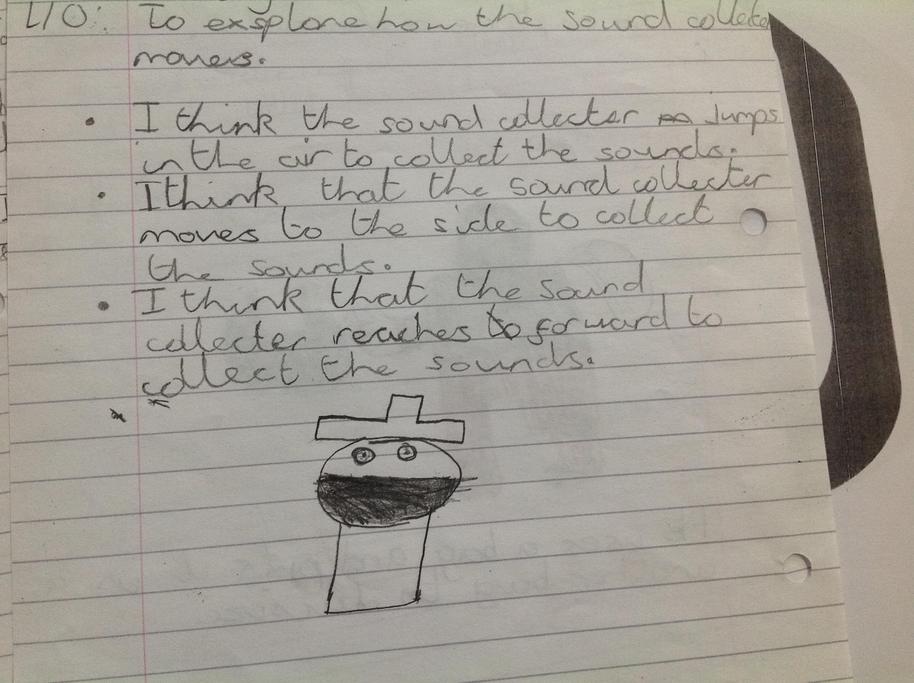 L/O: To exsplore how the sound collecter
moves.
I think the sound collecter Jumps
in the air to collect the sounds.
I think that the sound collecter
moves to the side to collect
the sounds.
I think that the sound
collecter reaches to forward to
collect the sounds.